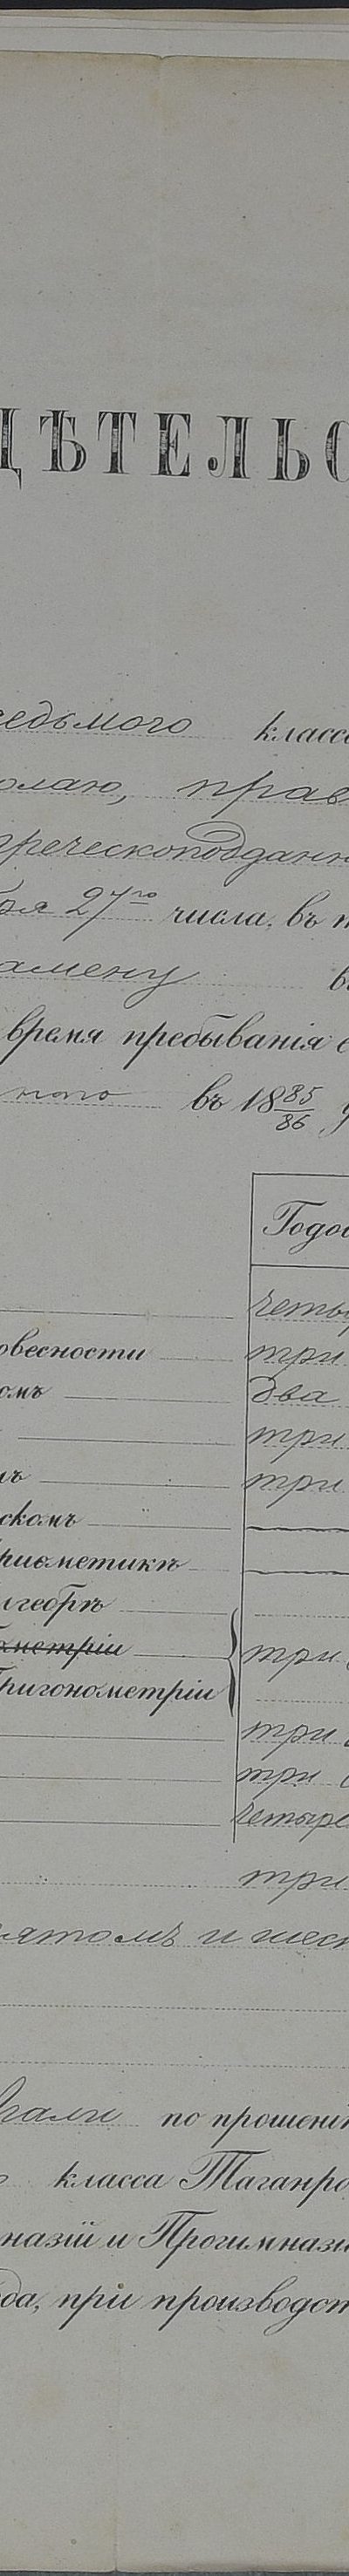 ДѢТЕЛЬС
седьмого класса
олаю, прав
греческоподданн
бря 27го числа, въ
амену въ
время пребыванія е
ного въ 18 85/86
Годов
четыр
овесности три
омъ два
три
мъ три
скомъ
риѳметикѣ
лгебрѣ
ометріи три
ригонометріи
три
три
четыре
три
пятомъ и шест
гали по прошені
класса Таганро
назій и Прогимнази
ода, при производст